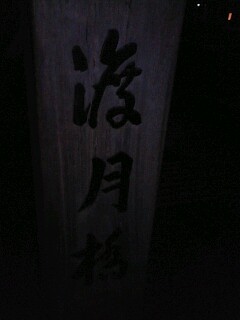 渡月橋